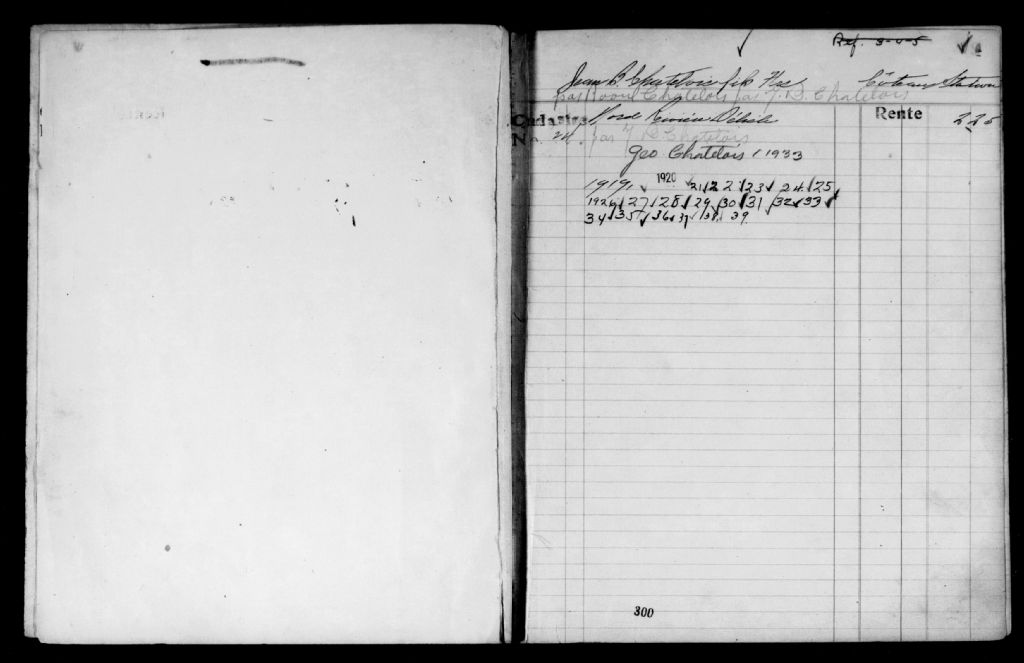 Ref. 3-4-5
Jean B. Chatelois fils Coteau Station
par Raoul Chatelois par J. B. Chatelois
Cadastre Nord Rivière Delisle Rente 2 25
No. 24 par J B Chatelois
Geo Chatelois 1933
1919 1920 21 22 23 24 25
1926 27 28 29 30 31 32 33
34 35 36 37 38 39
300